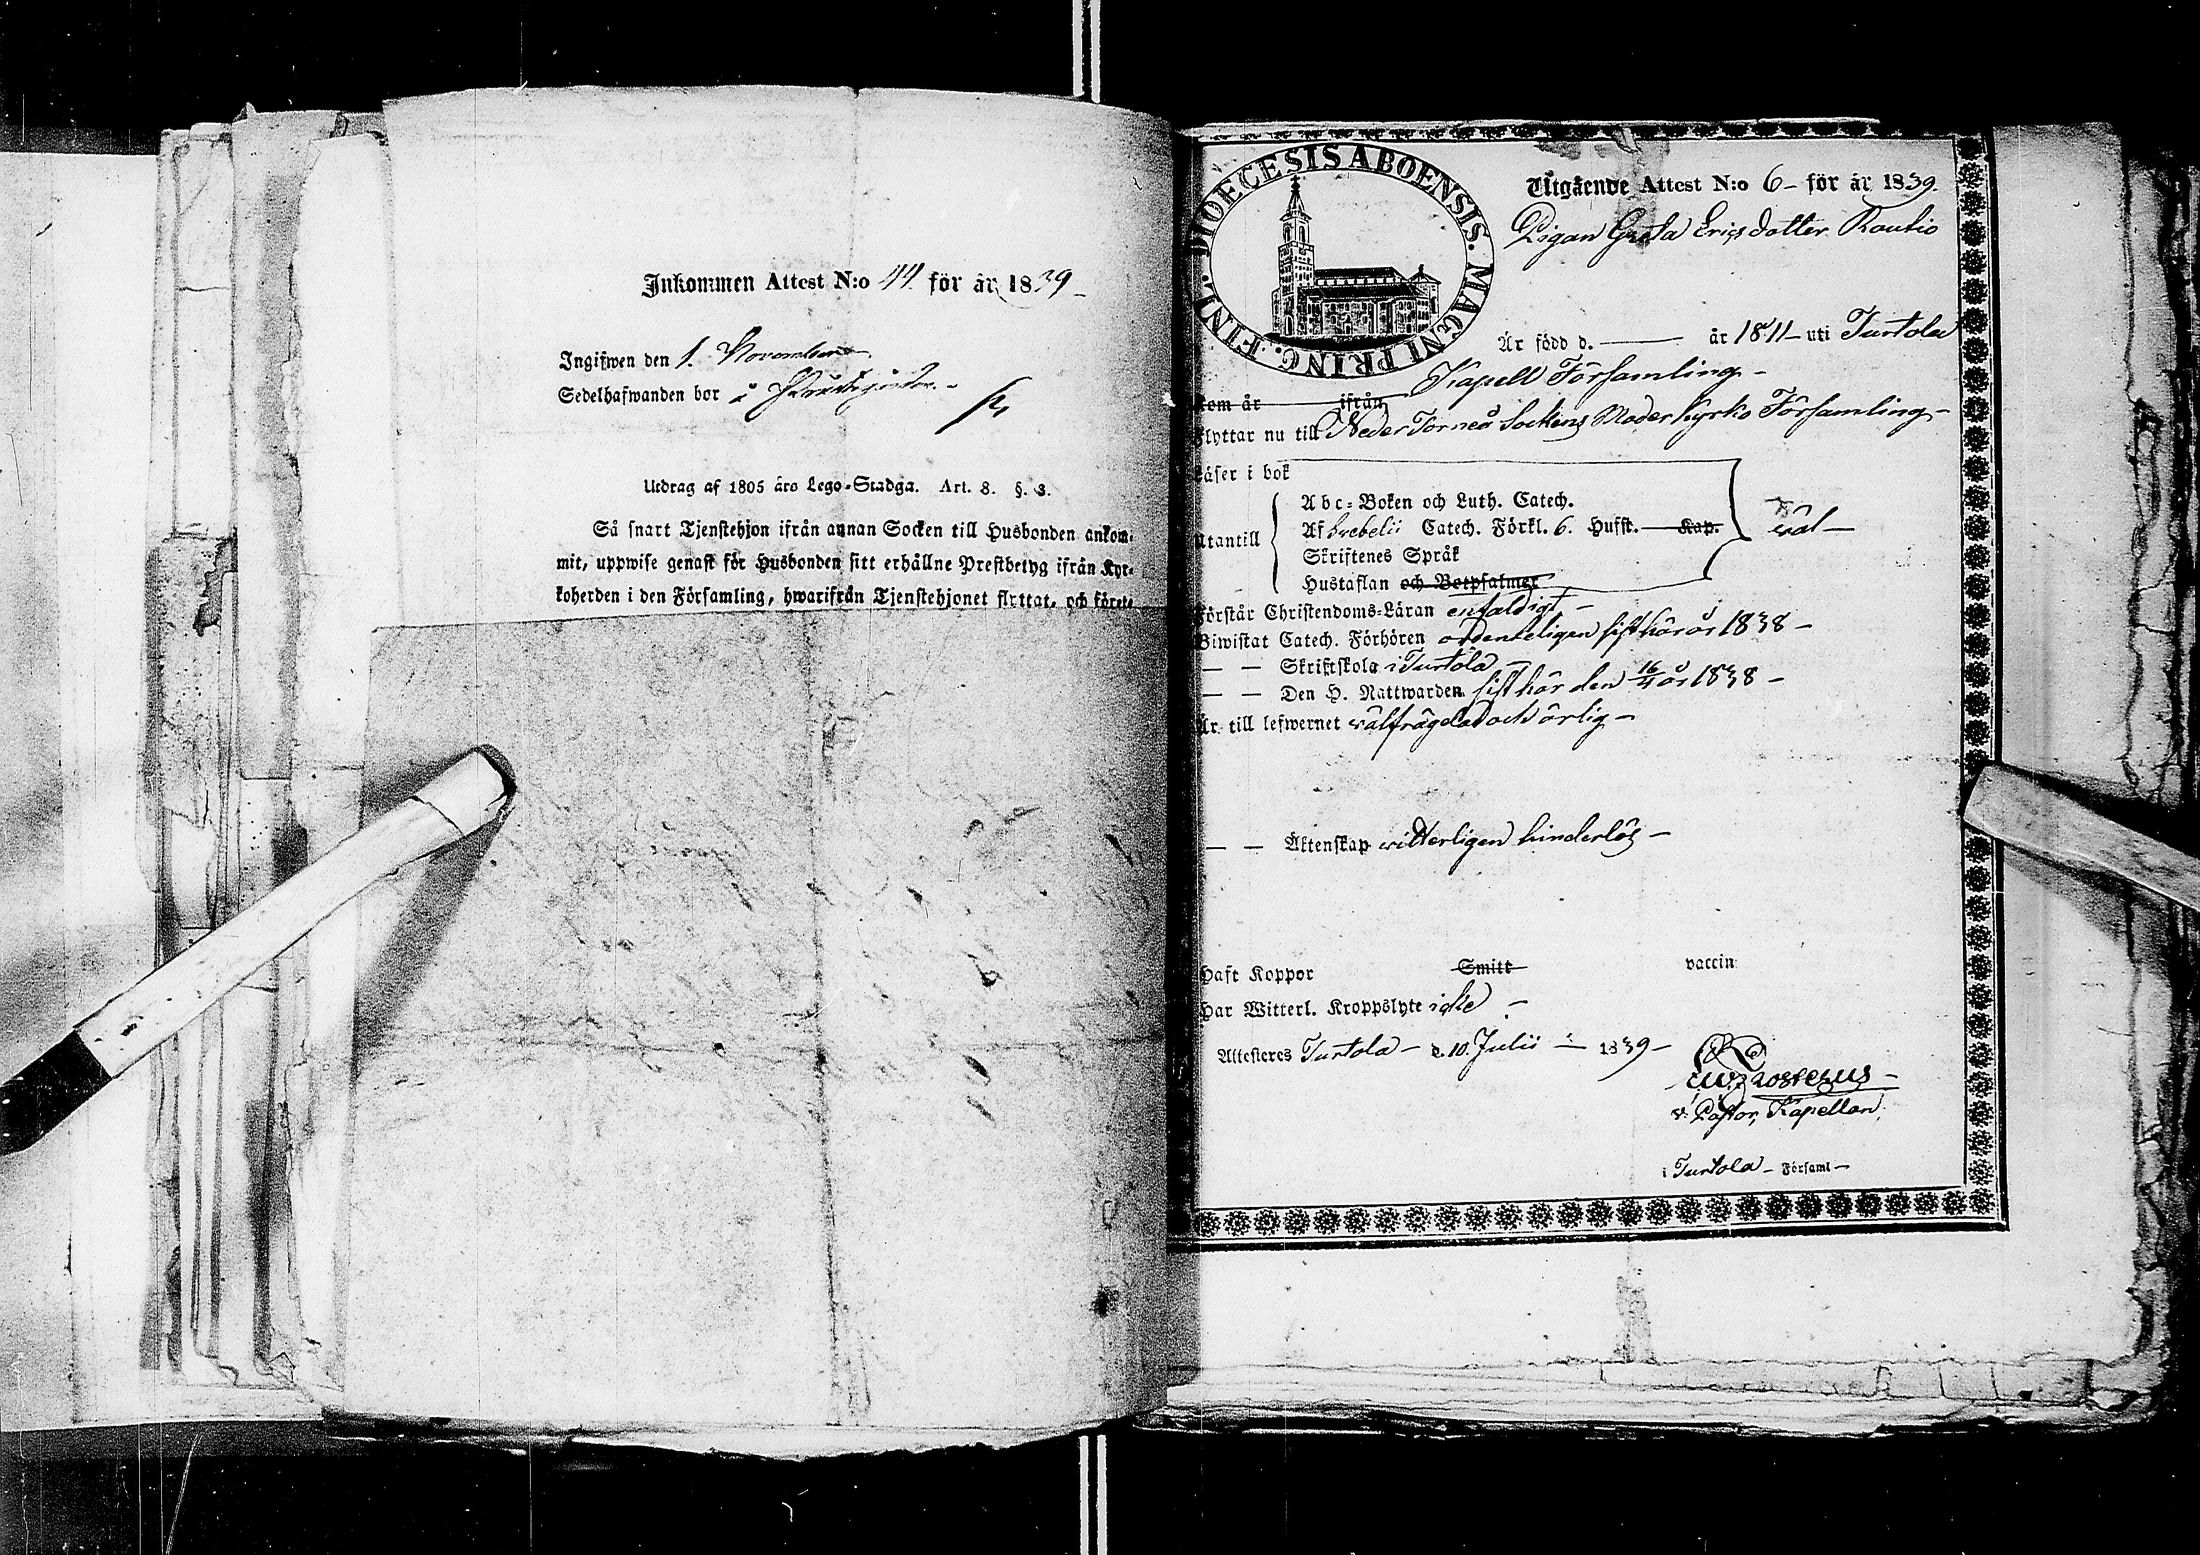 Inkommen Attest N:o 44 för år 1839
Ingifwen den 1. November
Sedelhafwanden bor i
Utdrag af 1805 års Lego-Stadga. Art. 8. §. 3.
Så snart Tjenstehjon ifrån annan Socken till Husbonden ankom-
mit, uppwise genast för Husbonden sitt erhållne Prestbetyg ifrån Kyr-
koherden i den Församling, hwarifrån Tjenstehjonet flyttat, och förete
DIOECESIS ABOENSIS. MAGNI PRINC. FINL.
Utgående Attest N:o 6 – för år 1839.
Pigan Greta Ericsdotter Rautio
Är född d. — år 1811 – uti Turtola
Kapell Församling –
kom år ifrån
flyttar nu till Neder Torneå Sockens Moderkyrko Församling –
Läser i bok
Utantill
Abc-Boken och Luth. Catech.
Af Svebelii Catech. Förkl. 6. Hufst. Kap.
Skriftenes Språk
Hustaflan och Botpsalmer
väl –
Förstår Christendoms-Läran enfaldigt –
Biwistat Catech. Förhören ordenteligen sist här år 1838 –
— — Skriftskola i Turtola –
— — Den H. Nattwarden sist här den 16/4 år 1838 –
Är till lefwernet välfrägdad och ärlig –
— — Äktenskap witterligen hinderlös –
Haft Koppor Smitt vaccin:
Har Witterl. Kroppslyte icke –
Attesteres Turtola – d. 10. Julii – 1839 –
v. Pastor, Kapellan,
i Turtola – Församl –